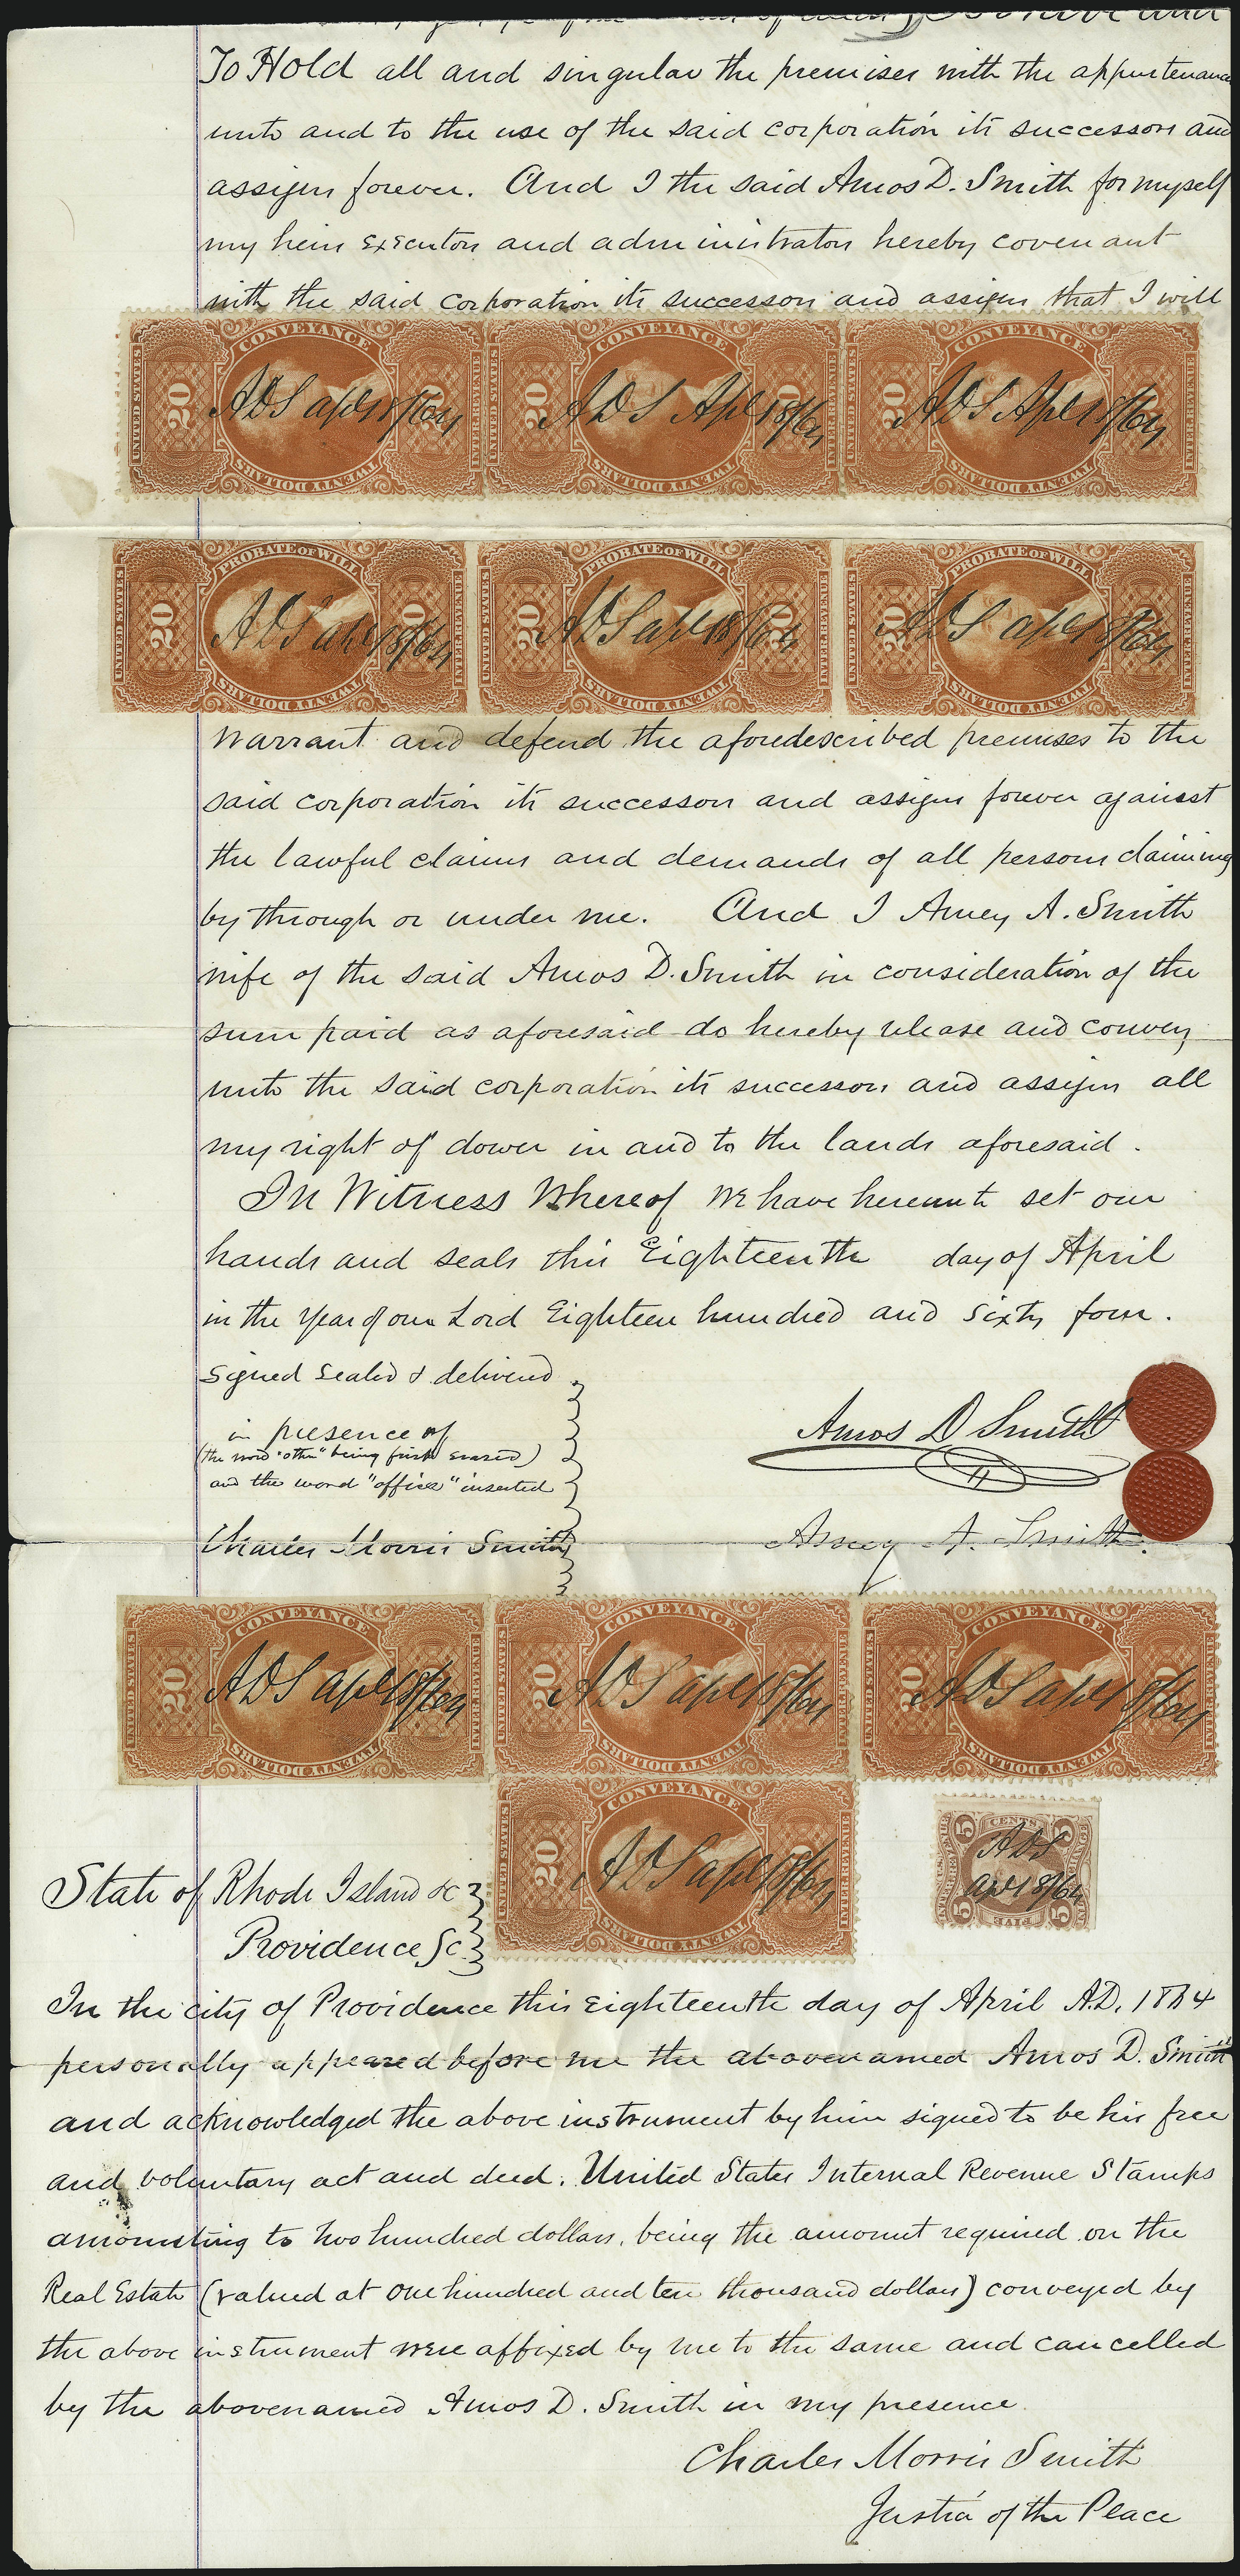 To Hold all and singular the premises with the appurtenance
unto and to the use of the said corporation its successors and
assigns forever. And I the said Amos D. Smith for myself
my heirs executors and administrators hereby covenant
with the said corporation its successors and assigns that I will
CONVEYANCE CONVEYANCE CONVEYANCE
UNITED STATES 20 ADS Apl 18/64 20 ADS Apl 18/64 20 ADS Apl 18/64
TWENTY DOLLARS TWENTY DOLLARS TWENTY DOLLARS
PROBATE OF WILL PROBATE OF WILL PROBATE OF WILL
UNITED STATES 20 ADS apl 18/64 UNITED STATES 20 ADS apl 18/64 UNITED STATES 20 ADS apl 18/64
TWENTY DOLLARS TWENTY DOLLARS TWENTY DOLLARS
warrant and defend the aforedescribed premises to the
said corporation its successors and assigns forever against
the lawful claims and demands of all persons claiming
by through or under me. And I Amey A. Smith
wife of the said Amos D. Smith in consideration of the
sum paid as aforesaid do hereby release and convey
unto the said corporation its successors and assigns all
my right of dower in and to the lands aforesaid.
In Witness Whereof we have hereunto set our
hands and seals this Eighteenth day of April
in the year of our Lord Eighteen hundred and sixty four.
Signed sealed & delivered
in presence of
(the word "other" being first erased)
and the word "office" inserted
Amos D Smith
Charles Morris Smith
Amey A. Smith
CONVEYANCE CONVEYANCE CONVEYANCE
UNITED STATES 20 ADS apl 18/64 UNITED STATES 20 ADS apl 18/64 UNITED STATES 20 ADS apl 18/64
TWENTY DOLLARS TWENTY DOLLARS TWENTY DOLLARS
CONVEYANCE
UNITED STATES 20 ADS apl 18/64
TWENTY DOLLARS
5 CENTS 5
ADS
Apl 18/64
5 FIVE 5
State of Rhode Island &c
Providence Sc
In the city of Providence this eighteenth day of April A.D. 1864
personally appeared before me the abovenamed Amos D. Smith
and acknowledged the above instrument by him signed to be his free
and voluntary act and deed. United States Internal Revenue Stamps
amounting to two hundred dollars, being the amount required on the
Real Estate (valued at one hundred and ten thousand dollars) conveyed by
the above instrument were affixed by me to the same and cancelled
by the abovenamed Amos D. Smith in my presence.
Charles Morris Smith
Justice of the Peace